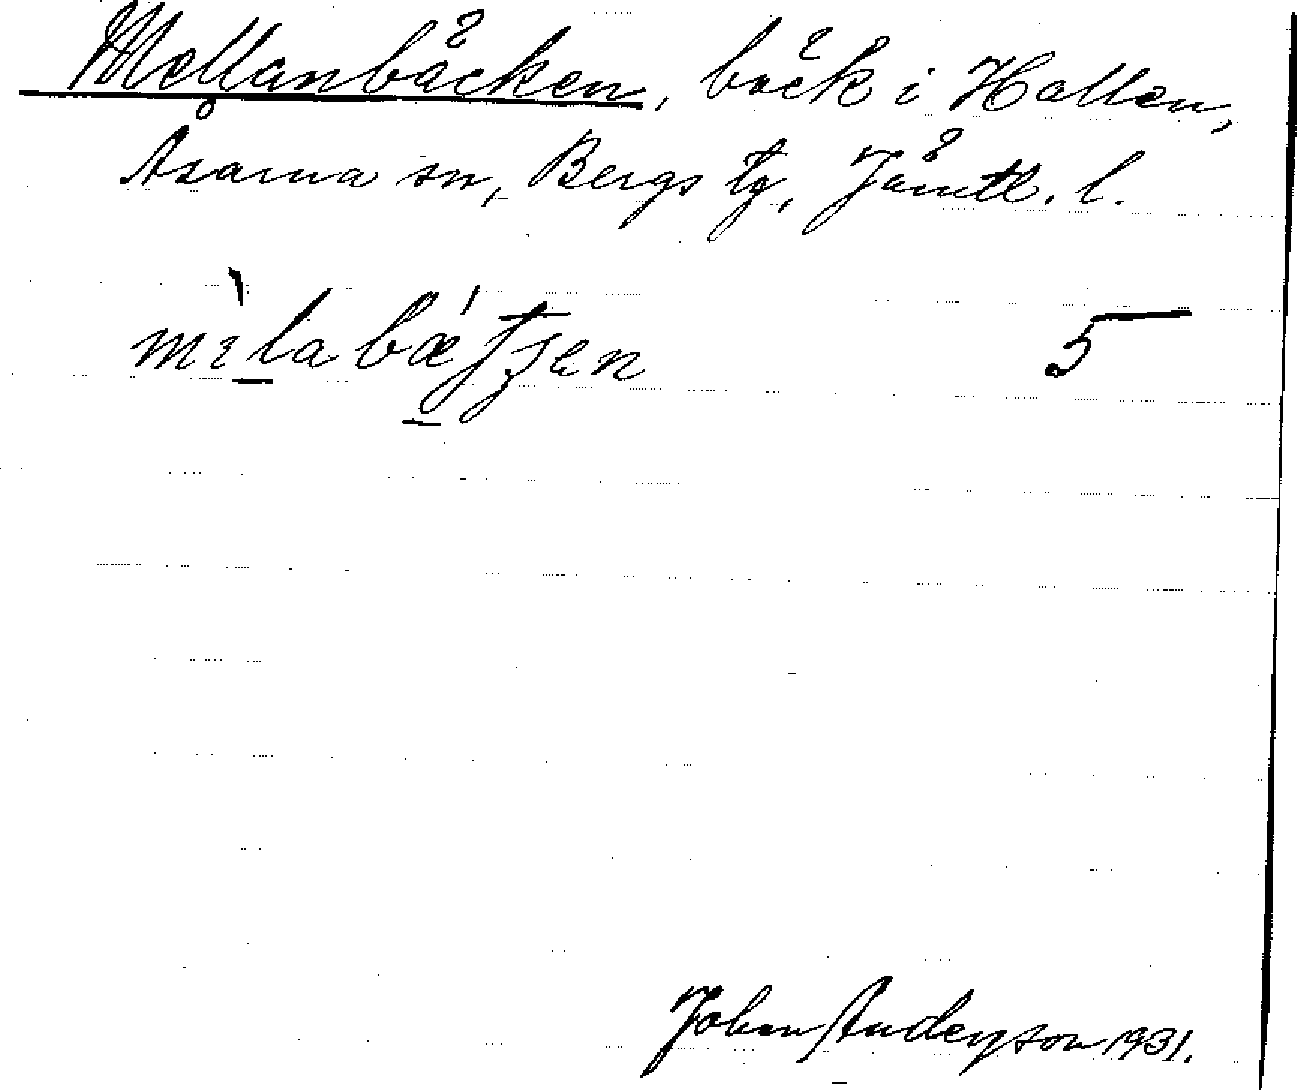 Mellanbäcken, bäck i Hallen,
Åsarna sn, Bergs tg, Jämtl. l.
5
Johan Anderson 1931.